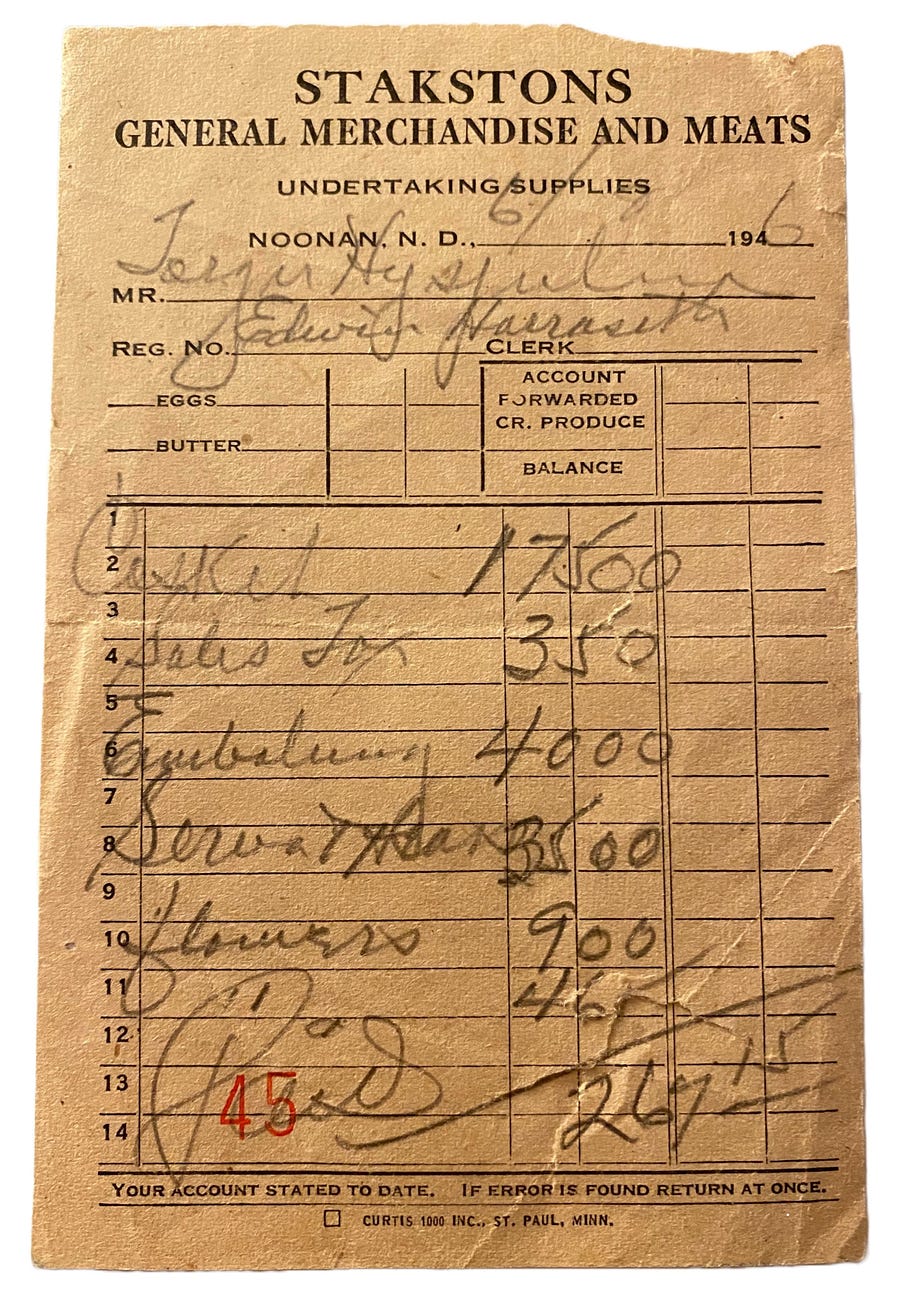 STAKSTONS
GENERAL MERCHANDISE AND MEATS
UNDERTAKING SUPPLIES
NOONAN, N. D., 6/ 1946
MR.
Edwin
REG. NO. CLERK
EGGS
BUTTER
ACCOUNT
FORWARDED
CR. PRODUCE
BALANCE
1
2 Casket 175 00
3
4 Sales Tax 3 50
5
6 Embalming 40 00
7
8 35 00
9
10 flowers 9 00
11 4 65
12
13 Paid 267 15
45
14
YOUR ACCOUNT STATED TO DATE. IF ERROR IS FOUND RETURN AT ONCE.
CURTIS 1000 INC., ST. PAUL, MINN.